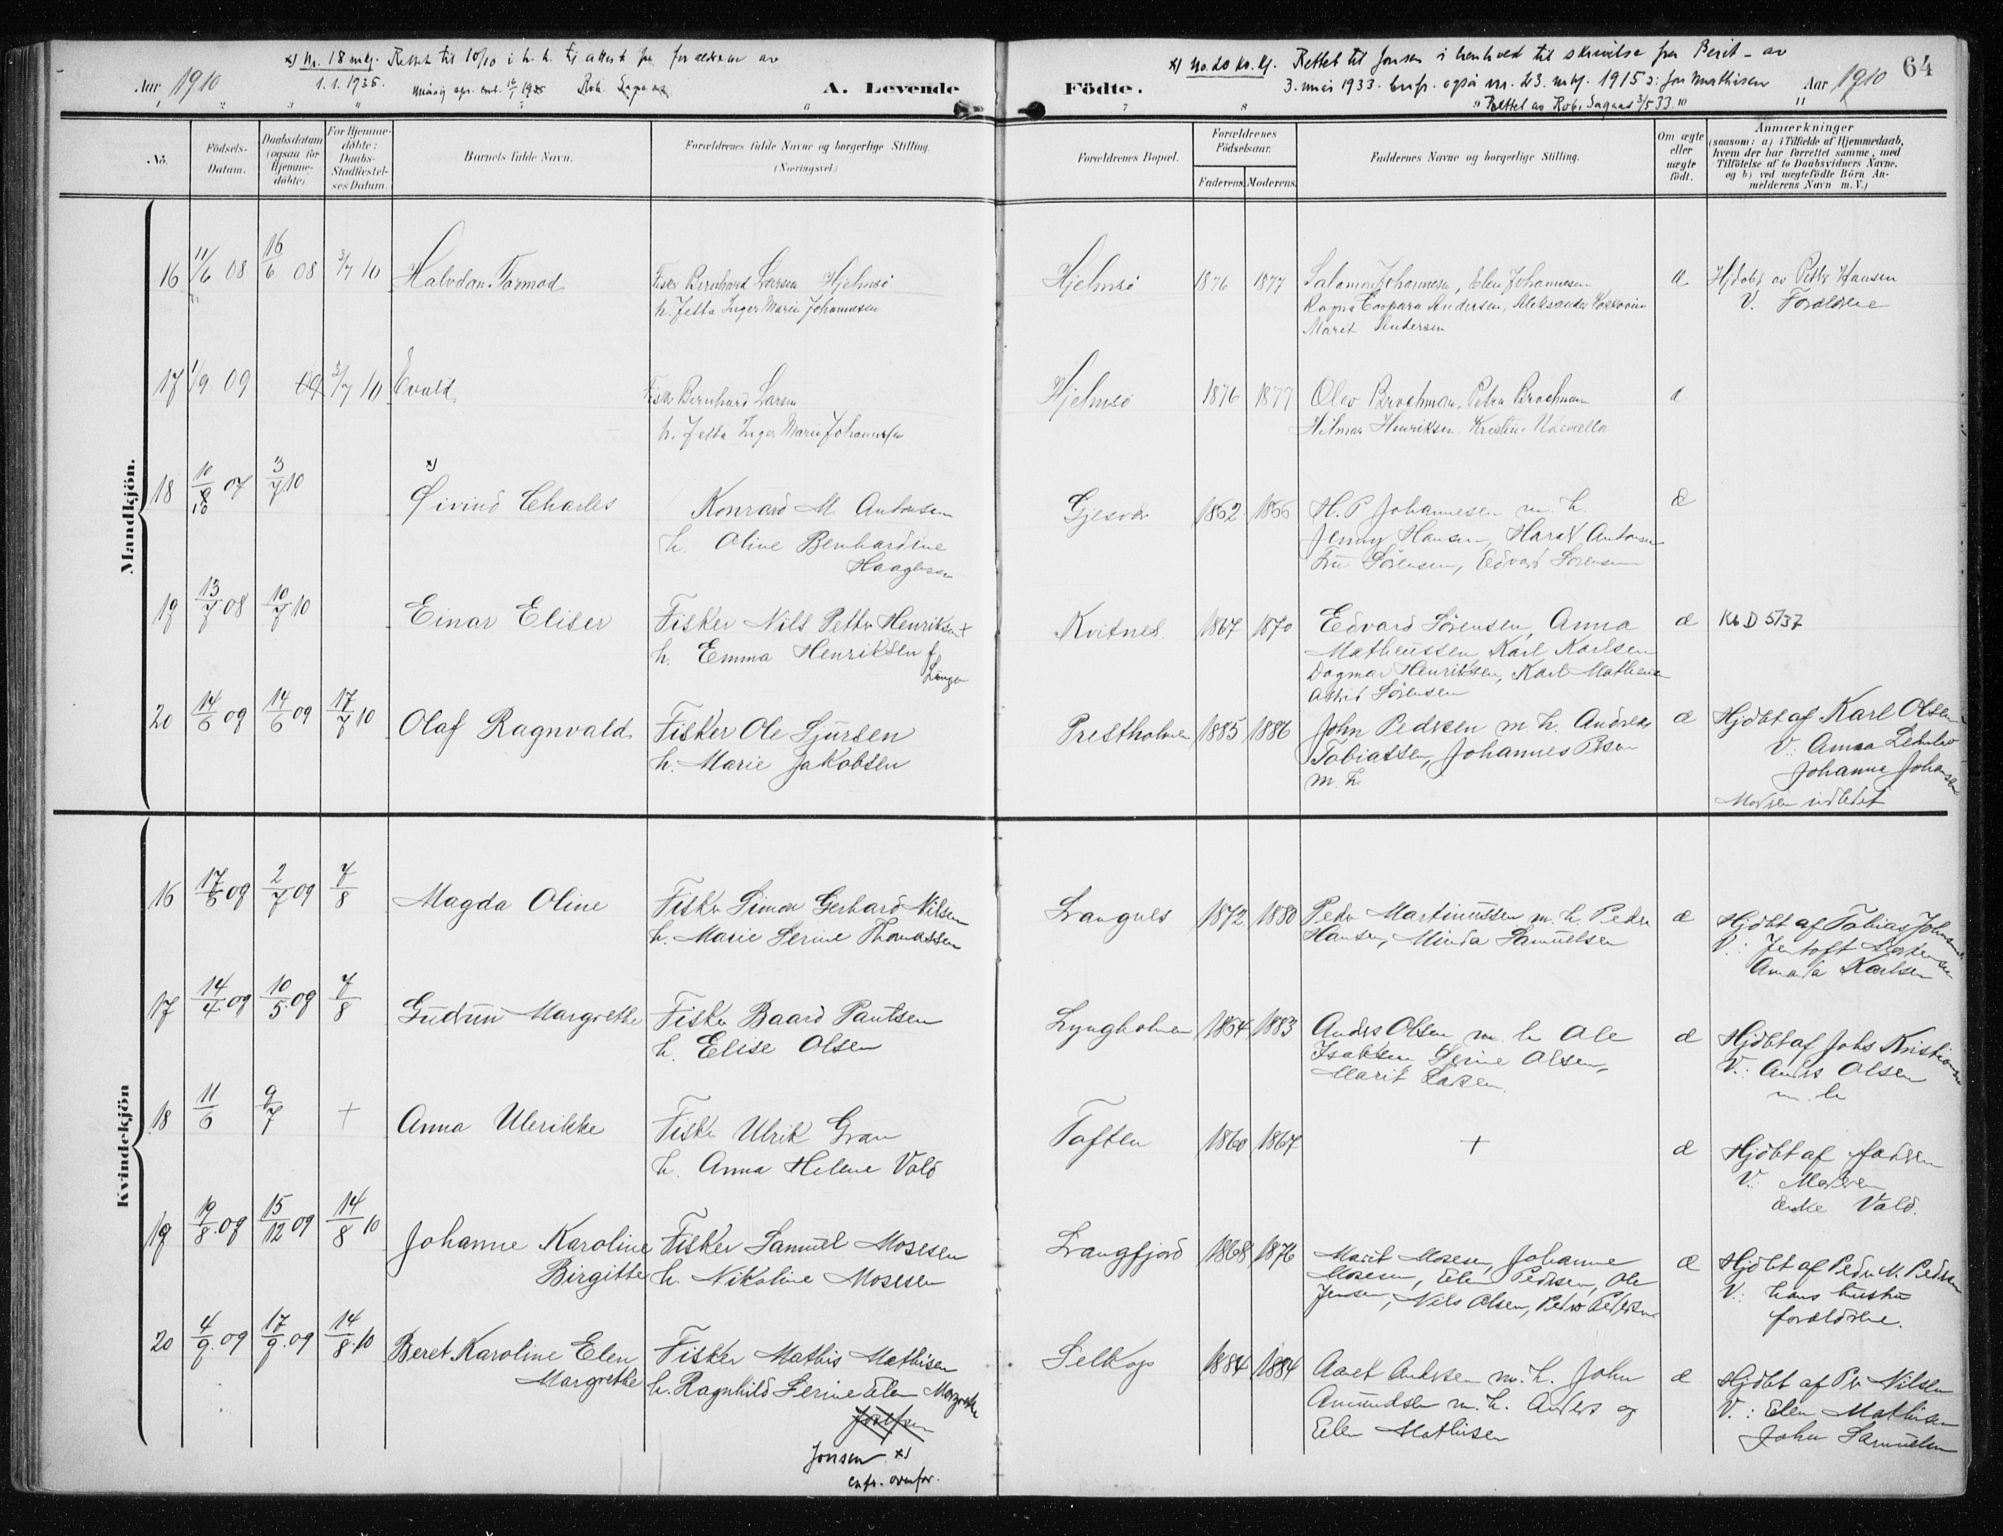 x) No. 18 mkj. Rettet til 10/10 i h. h. til attest fra foreldrene av
1.1.1935.
Aar 1910
A. Levende
x) No. 20 kv.kj. Rettet til Jonsen i henhold til skrivelse fra Berit av
3. mai 1933. Confr. også nr. 23. mkj. 1915 Jon Mathisen
Rettet av Rob. 3/5 33.
Fødte.
Aar 1910
64
No.
Fødsels-Datum.
Daabsdatum (ogsaa for Hjemme-døbte).
For Hjemme-døbte: Daabs-Stadfæstel-ses Datum.
Barnets fulde Navn.
Forældrenes fulde Navne og borgerlige Stilling.
(Næringsvei.)
Forældrenes Bopæl.
Forældrenes Fødselsaar.
Faderens. Moderens.
Faddernes Navne og borgerlige Stilling.
Om ægte eller uægte født.
Anmærkninger
(saasom: a) i Tilfælde af Hjemmedaab, hvem der har forrettet samme, med Tilføielse af to Daabsvidners Navne, og b) ved uægtefødte Børn An-melderens Navn m. V.)
Mandkjøn.
16 11/6 08 16/6 08 3/7 10 Halvdan Tormod Fisker Bernhard Larsen Hjelmsø Hjelmsø 1876 1877 Salamon Johannesen, Elen Johannesen Hjdøbt av Petter Hansen
h. Jetta Inger Marie Johannesen Ragna Andersen, Aleksander V. Forældrene
Marit Andersen
17 1/9 09 3/7 10 Evald Fisker Bernhard Larsen Hjelmsø 1876 1877 Olav Brochman, Petra Brochman
h. Jetta Inger Marie Johannesen Hilmar Henriksen, Kristine Udevalla
18 10/10 07 3/7 10 x) Øivind Charles Konrad M. Antonsen Gjesvær 1862 1866 H. P. Johannesen m. h. æ
h. Oline Bernhardine Jenny Hansen, Harald Antonsen
Haagensen Fru Sørensen, Edvard Sørensen
19 13/7 08 10/7 10 Einar Eliser Fisker Nils Petter Henriksen Kvitnes 1867 1870 Edvard Sørensen, Anna æ Kb D 5/37
h. Emma Henriksen f. Matheussen Karl Karlsen
Dagmar Henriksen, Karl
Astrid Sørensen
20 14/6 09 14/6 09 17/7 10 Olaf Ragnvald Fisker Ole Sjursen Prestholmen 1885 1886 John Pedersen m. h. Andreas æ Hjdøbt af Karl Olsen
h. Marie Jakobsen Tobiassen, Johannes V. Anna
m. h. Johanna Johansen
Moderen indledet
Kvindekjøn
16 17/6 09 2/7 09 7/8 Magda Oline Fisker Simon Gerhard Nilsen Langnes 1872 1880 Peder Martinussen m. h. Peder æ Hjdøbt af Tobias Johansen
h. Marie Serine Thomassen Hansen, Minda Samuelsen V.: Jentoft
Amanda Karlsen
17 14/4 09 10/5 09 7/8 Gudrun Margrethe Fisker Baard Paulsen Lyngholmen 1864 1883 Anders Olsen m. h. Ole æ Hjdøbt af Johs Kristiansen
h. Elise Olsen Isaksen Serine Olsen, V.: Anders Olsen
Marit Larsen m. h.
18 11/6 9/7 + Anna Ulrikke Fisker Ulrik Gran Toften 1860 1867 + æ Hjdøbt af faderen
h. Anna Helene Vald V.: Moderen
Enke Vald.
19 19/8 09 15/12 09 14/8 10 Johanne Karoline Fisker Samuel Mosesen Langfjord 1868 1876 Marit Mosesen, Johanne æ Hjdøbt af Peder N. Pedersen
Birgitte h. Nikoline Mosesen Mosesen, Elen Pedersen, Ole V: hans hustru
Jensen, Nils Olsen, Peder Pedersen forældrene.
20 4/9 09 17/9 09 14/8 10 Beret Karoline Elen Fisker Mathis Mathisen Selkop 1884 1884 Aaret Andersen m. h. John æ Hjdøbt af Per Nilsen
Margrethe h. Ragnhild Serine Elen Margrethe Amundsen m. h. Anders og V.: Elen Mathisen
Josefsen Elen Mathisen John Samuelsen
Jonsen x)
cnfr. ovenfor.